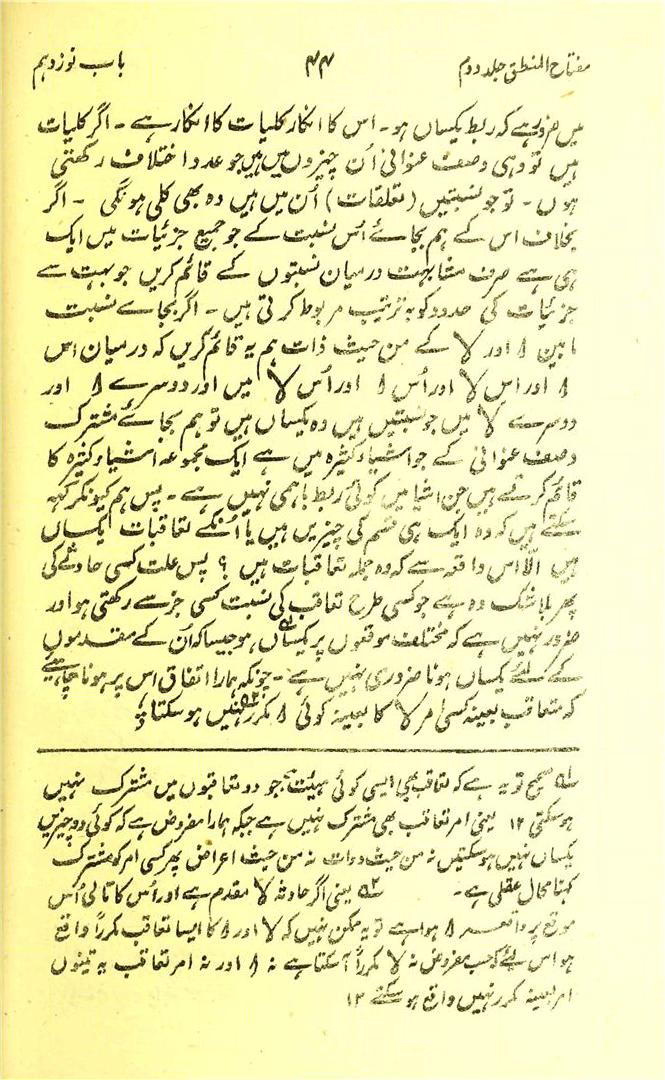 مفتاح المنطق جلد دوم ۴۴ باب نوزدہم
میں ضرور ہے کہ ربط یکساں ہو۔ اس کا انکار کلیات کا انکار ہے۔ اگر کلیات
ہیں تو وہی وصف عنوانی اُن چیزوں میں ہیں جو عدد اختلاف رکھتی
ہوں۔ تو جو نسبتیں (تعلقات) اُن میں ہیں وہ بھی کلی ہونگی۔ اگر
بخلاف اس کے ہم بجائے اُس نسبت کے جو جمیع جزئیات میں ایک
ہی ہے صرف مشابہت درمیان نسبتوں کے قائم کریں جو بہت سے
جزئیات کی حدود کو بہ ترتیب مربوط کرتی ہیں۔ اگر بجائے نسبت
مابین ۸ اور لا کے من حیث ذات ہم یہ قائم کریں کہ درمیان اس
۸ اور اس لا اور اُس ۸ اور اُس لا میں اور دوسرے ۸ اور
دوسرے لا میں جو نسبتیں ہیں وہ یکساں ہیں تو ہم بجائے مشترک
وصف عنوانی کے جو اشیاء کثیرہ میں ہے ایک مجموعہ اشیاء کثیرہ کا
قائم کرتے ہیں جن اشیا میں کوئی ربط باہمی نہیں ہے۔ پس ہم کیونکر کہہ
سکتے ہیں کہ وہ ایک ہی قسم کی چیزیں ہیں یا اُنکے تعاقبات یکساں
ہیں الّا اس واقعہ سے کہ وہ جملہ تعاقبات ہیں ؟ پس علت کسی حادثے کی
پھر بلاشک وہ ہے جو کسی طرح تعاقب کی نسبت کسی جز سے رکھتی ہو اور
ضرور نہیں ہے کہ مختلف موقعوں پر یکساں ہو جیسا کہ اُن کے مقدموں
کے لئے یکساں ہونا ضروری نہیں ہے۔ چونکہ ہمارا اتفاق اس پر ہونا چاہئیے
کہ متعاقب بعینہ کسی امر لا کا بعینہ کوئی ۸ مکرر نہیں ہو سکتا
۱؎ صحیح تو یہ ہے کہ تعاقب بھی ایسی کوئی ہیئت ہے جو دو تعاقبوں میں مشترک نہیں
ہو سکتی ۱۲ یعنی امر تعاقب بھی مشترک نہیں ہے جبکہ ہمارا مفروض ہے کہ کوئی دو چیزیں
یکساں نہیں ہو سکتیں نہ من حیث ذوات نہ من حیث اعراض پھر کسی امر کو مشترک
کہنا محال عقلی ہے۔ ۲؎ یعنی اگر حادثہ لا مقدم ہے اور اُس کا تالی اُس
موقع پر واقعہ ۸ ہوا ہے تو یہ ممکن نہیں کہ لا اور ۸ کا ایسا تعاقب مکرراً واقع
ہو اس لئے کہ حسب مفروض نہ لا مکرراً آ سکتا ہے نہ ۸ اور نہ امر تعاقب یہ تینوں
امر بعینہ مکرر نہیں واقع ہو سکتے ۱۲